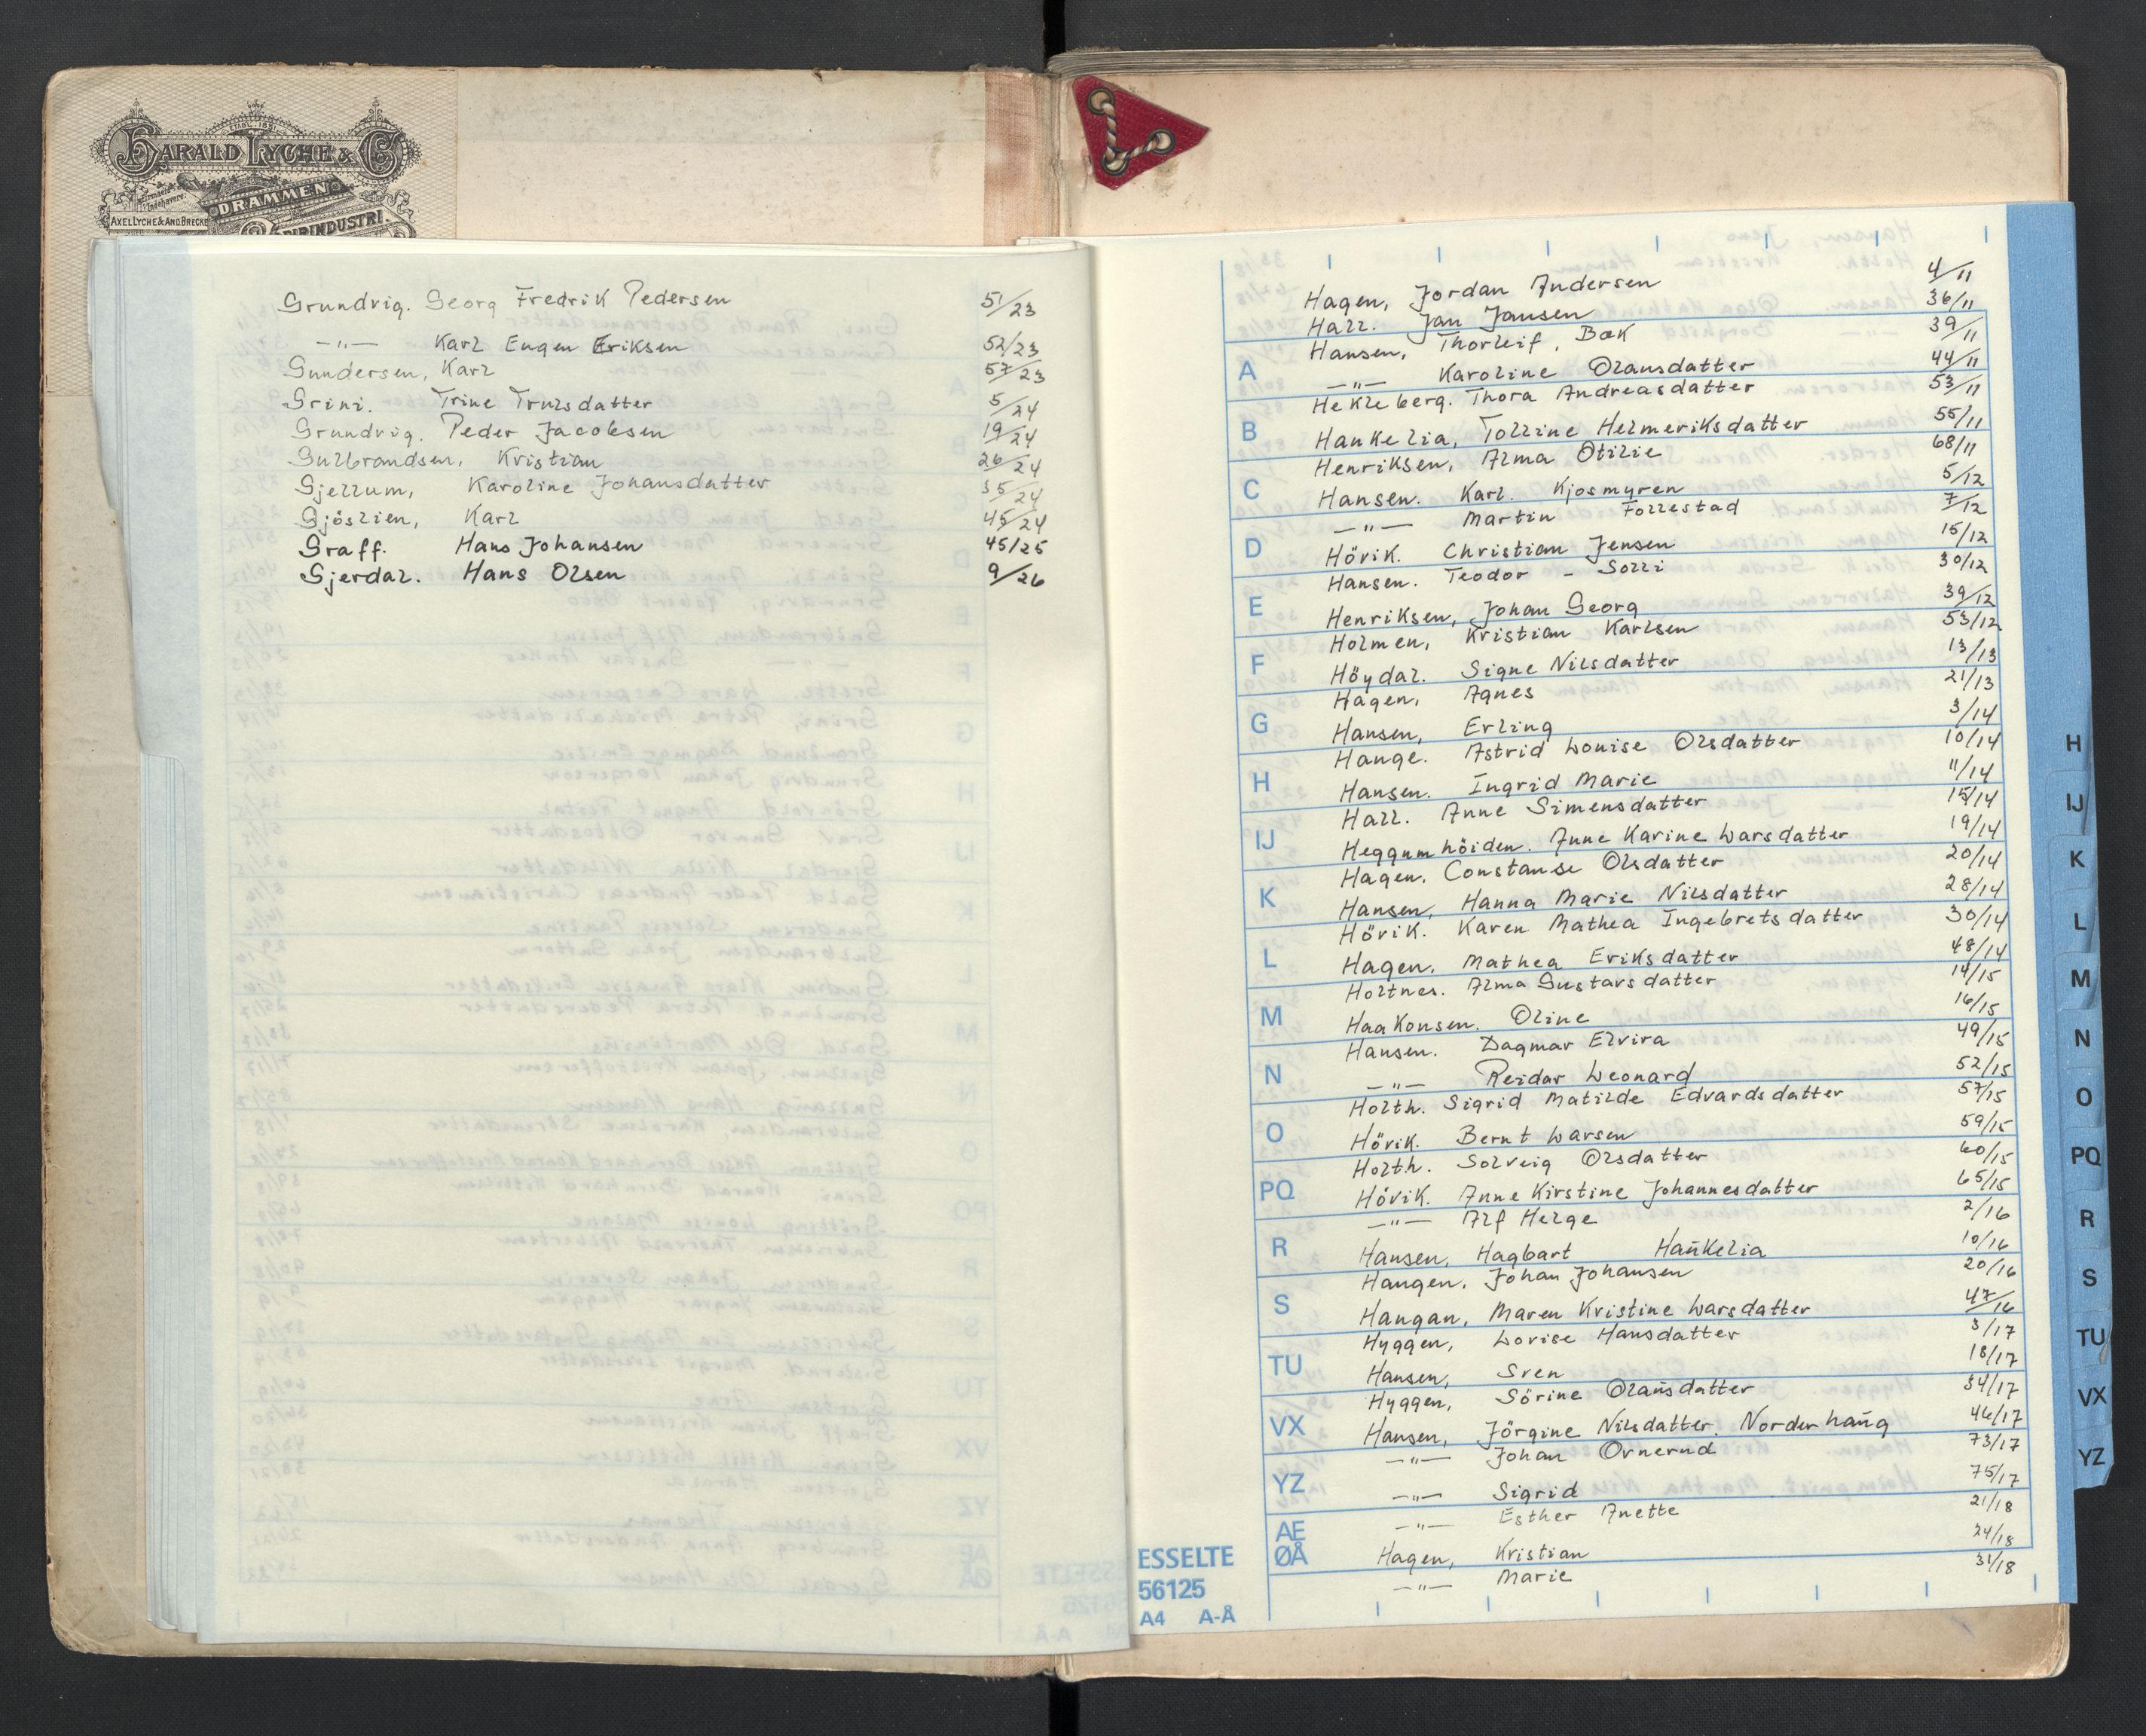 HARALD LYCHE & Co
DRAMMEN
AXEL LYCHE & AND BRECKE
PAPIRINDUSTRI
Grundvig. Georg Fredrik Pedersen 51/23
—"— Karl Eugen Eriksen 52/23
Gundersen, Karl 57/23
Grini. Trine Trulsdatter 5/24
Grundvig. Peder Jacobsen 19/24
Gulbrandsen, Kristian 26/24
Gjellum, Karoline Johansdatter 35/24
Gjöslien, Karl 45/24
Graff. Hans Johansen 45/25
Gjerdal. Hans Olsen 9/26
Hagen, Jordan Andersen 4/11
Hall. Jan Jansen 36/11
Hansen, Thorleif, Bæk 39/11
—"— Karoline Olausdatter 44/11
Hekleberg. Thora Andreasdatter 53/11
Haukelia, Tolline Helmeriksdatter 55/11
Henriksen, Alma Otilie 68/11
Hansen. Karl. Kjosmyren 5/12
—"— Martin Follestad 7/12
Hövik. Christian Jensen 15/12
Hansen. Teodor - Solli 30/12
Henriksen, Johan Georg 39/12
Holmen, Kristian Karlsen 53/12
Höydal. Signe Nilsdatter 13/13
Hagen, Agnes 21/13
Hansen, Erling 3/14
Hauge. Astrid Louise Olsdatter 10/14
Hansen. Ingrid Marie 11/14
Hall. Anne Simensdatter 15/14
Heggumhöiden. Anne Karine Larsdatter 19/14
Hagen. Constanse Olsdatter 20/14
Hansen, Hanna Marie Nilsdatter 28/14
Hövik. Karen Mathea Ingebretsdatter 30/14
Hagen. Mathea Eriksdatter 48/14
Holtnes. Alma Gustavsdatter 14/15
Haakonsen. Oline 16/15
Hansen. Dagmar Elvira 49/15
—"— Reidar Leonard 52/15
Holth. Sigrid Matilde Edvardsdatter 57/15
Hövik. Bernt Larsen 59/15
Holth. Solveig Olsdatter 60/15
Hövik. Anne Kirstine Johannesdatter 65/15
—"— Alf Helge 2/16
Hansen, Hagbart Haŭkelia 10/16
Haugen. Johan Johansen 20/16
Haugan, Maren Kristine Larsdatter 47/16
Hyggen, Lovise Hansdatter 3/17
Hansen, Sven 18/17
Hyggen, Sörine Olaŭsdatter 34/17
Hansen, Jörgine Nilsdatter. Norderhaŭg 46/17
—"— Johan Ovnerud 73/17
—"— Sigrid 75/17
—"— Esther Anette 21/18
Hagen, Kristian 24/18
—"— Marie 31/18
A
B
C
D
E
F
G
H
IJ
K
L
M
N
O
PQ
R
S
TU
VX
YZ
AE
ØÅ
ESSELTE
56125
A4 A-Å
H
IJ
K
L
M
N
O
PQ
R
S
TU
VX
YZ